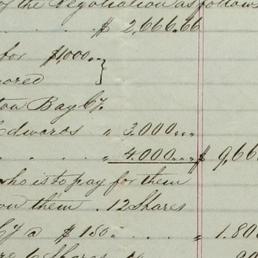 of the Negotiation as follow
$ 2,666.66
for $1,000...
ored
ton Bag 6%
Edwards " 3,000...
" 4.000... $ 9,66
who is to pay for them
ow them . 12 Shares
@ $ 150. . . . " 1.80